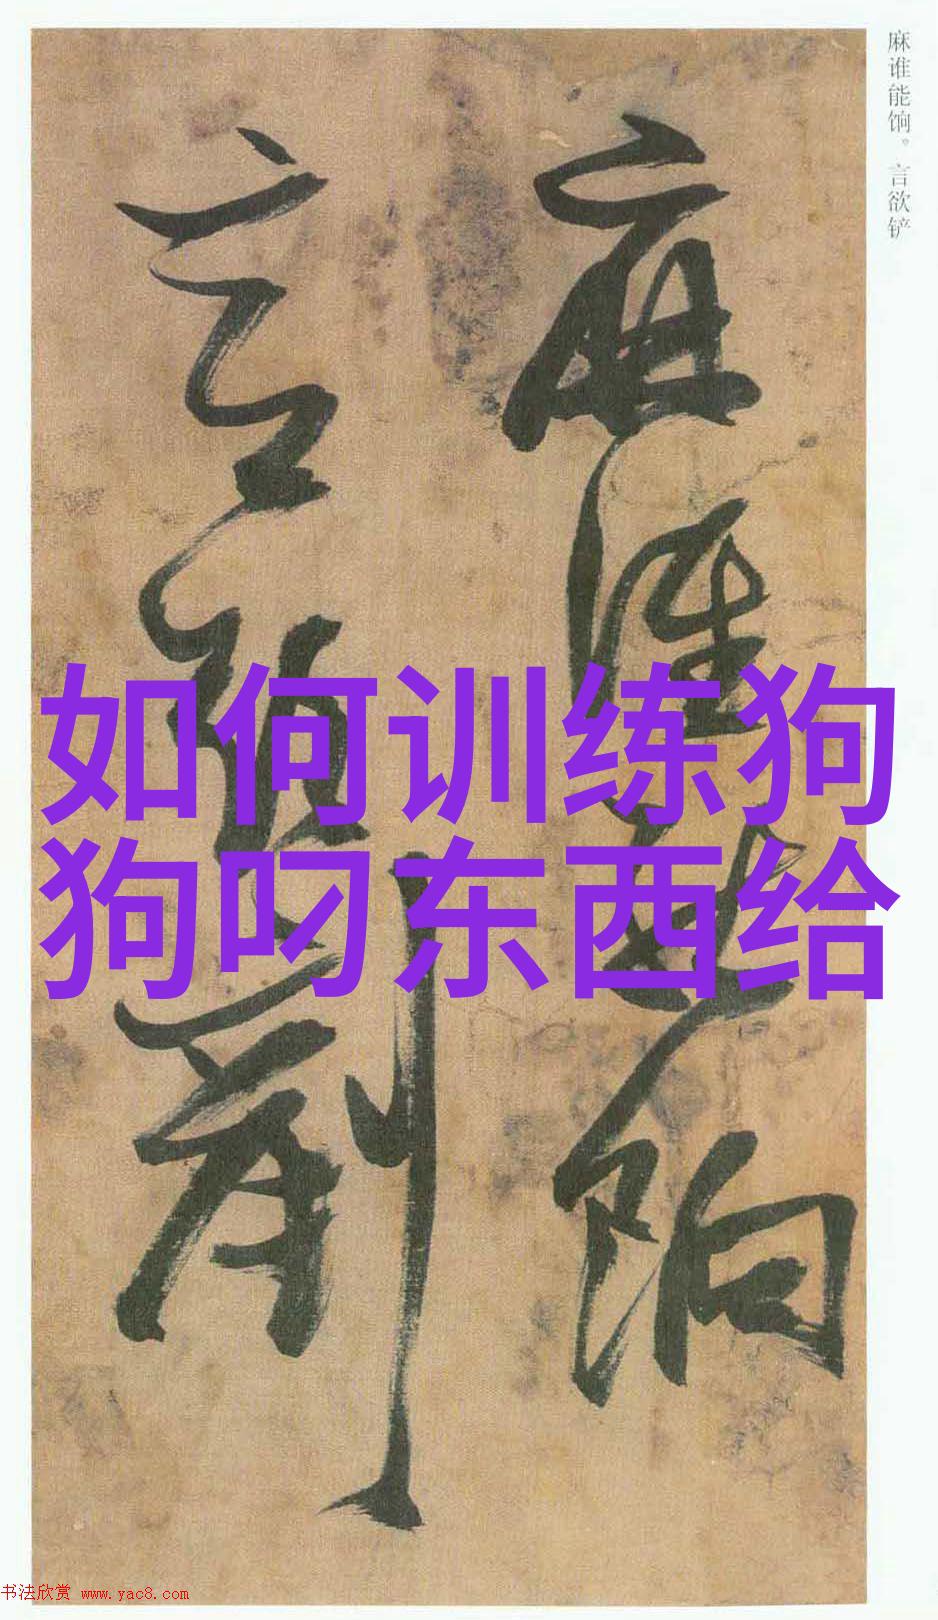 麻谁能饷。言欲铲
麻谁能饷
言欲刬
如何训练狗
狗叼东西给
书法欣赏 www.yac8.com